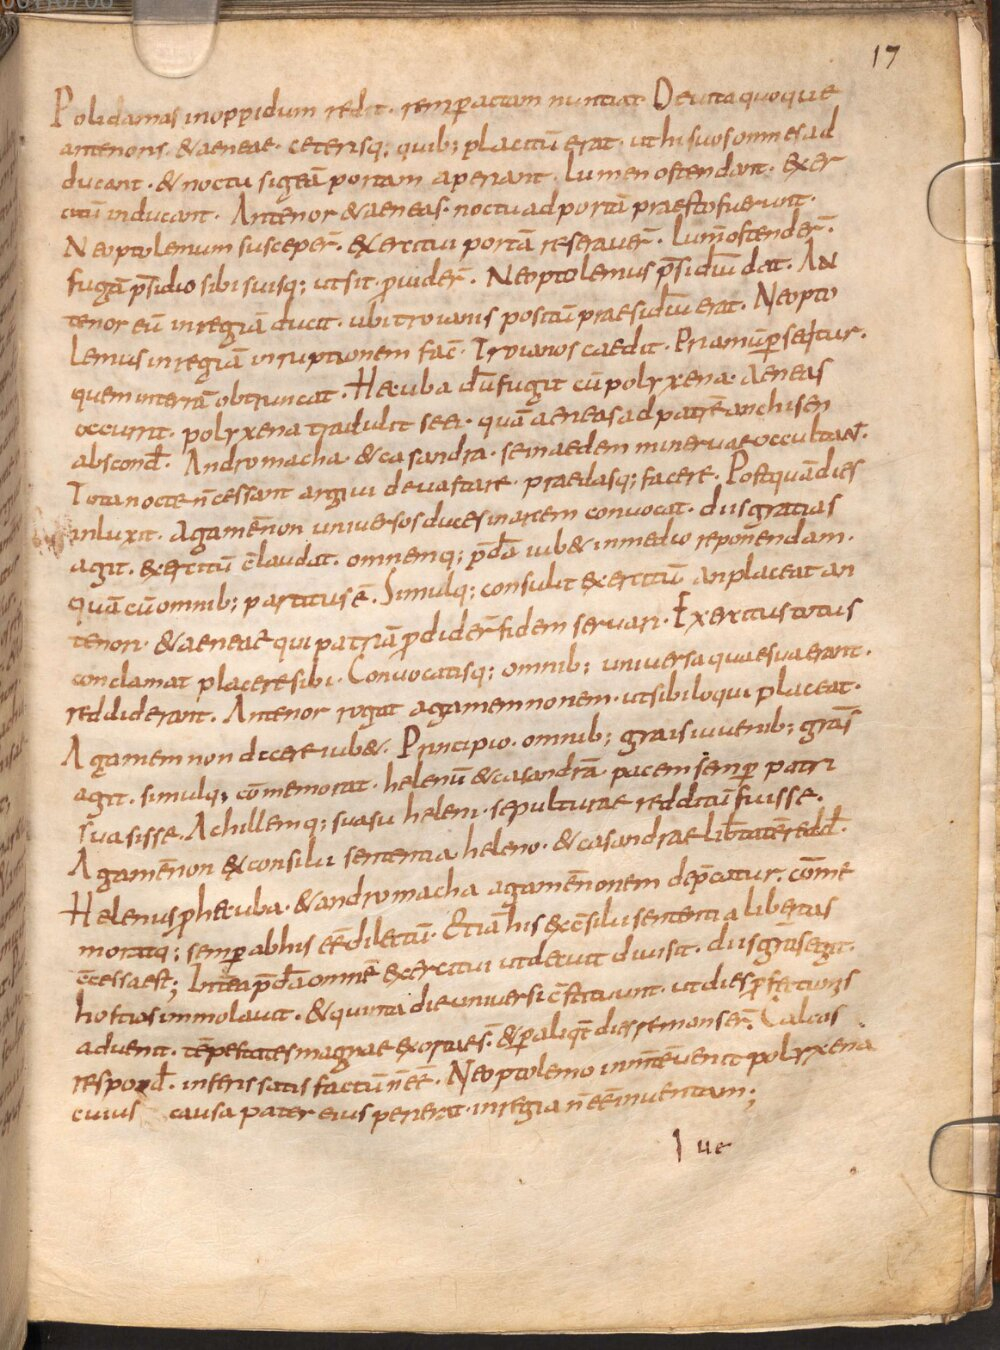 17
Polidamas inoppidum redit · remp̄actam nuntiat · Deuita quoque
antenoris · &aeneae · ceterisq; quib; placitū erat · uthi suos omnes ad
ducant · & noctu sigeā portam aperiant · lumen ostendant · exer
citū inducant · Antenor &aeneas · noctu ad portā praesto fuerunt ·
Neoptolemum susceper̄ · exercitui portā reserauer̄ · Lum̄ ostender̄ ·
fugā p̄sidio sibi suisq; utsit p̄uider̄ · Neoptolemus p̄sidiū dat · An
tenor eū inregiā ducit · ubi troianis positū praesidiū erat · Neopto
lemus inregiā inruptionem fac̄ · Troianos caedit · Priamū p̄seq̄tur ·
quem interrā obtruncat · Hecuba dū fugit cū polyxena · Aeneas
occurrit · polyxena tradidit se ei · quā aeneas ad patrē anchisen
abscond̄ · Andromacha · & casandra · se inaedem mineruae occultant ·
Tota nocte n̄ cessant argiui deuastare · praedasq; facere · Postquā dies
inluxit · Agamēnon uniuersos duces inarcem conuocat · diis gratias
agit · exercitū c̄laudat · omnemq; p̄dā iub& inmedio reponendam ·
quā cū omnib; partitus ē · Simulq; consulit exercitū an placeat an
tenori · & aeneae qui patriā p̄dider̄ fidem seruari · Exercitus totus
conclamat placere sibi · Conuocatisq; omnib; uniuersa quae sua erant ·
reddiderant · Antenor rogat agamemnonem · ut sibi loqui placeat ·
Agamemnon dicere iub& · Principio · omnib; grais iuuenib; grās
agit · simulq; cōmemorat · helenū & casandrā pacem semp̄ patri
suasisse · Achillemq; suasu heleni · sepulturae redditū fuisse ·
Agamēnon ex consilii sententia heleno · & casandrae lib̄tatē redd̄ ·
Helenus p̄ hecuba · & andromacha agamēnonem dep̄catur · cōme
moratq; semp̄ ab his eē dilectū · Etiā his ex c̄silii sententia libertas
c̄cessa est; Interea p̄dā omnē exercitui ut decuit diuisit · diis grās egit ·
hostias immolauit · & quinta die uniuersi c̄stituunt · ut dies p̄fectionis
aduenit · tēpestates magnae exortaes̄ · & p̄ aliq̄t dies remanser̄ · Calcas
respond̄ · inferis satis factū n̄ eē · Neoptolemo inmtē uenit polyxena
cuius causa pater eius perierat · inregia n̄ eē inuentam;
Iue